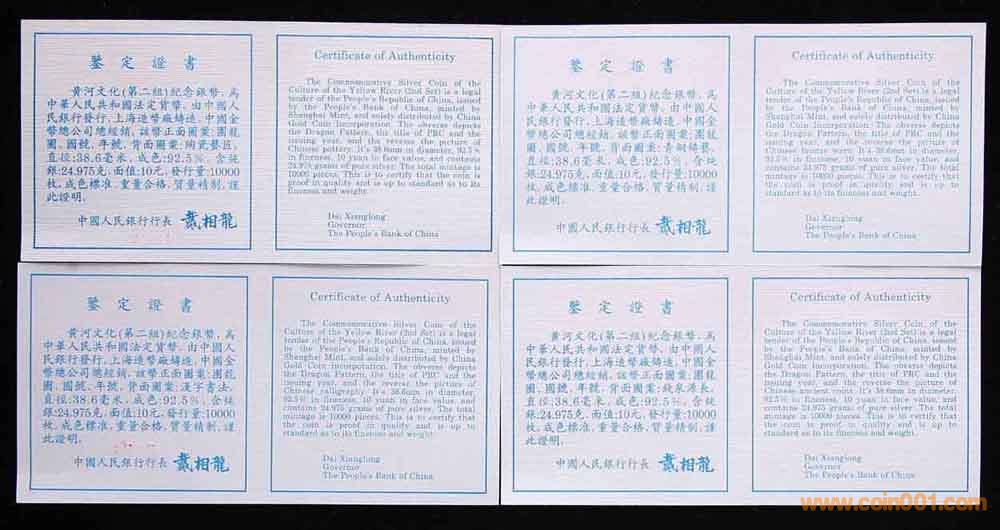 鑒定證書
黃河文化(第二組)紀念銀幣,為
中華人民共和國法定貨幣,由中國人
民銀行發行,上海造幣廠鑄造,中國金
幣總公司總經銷,該幣正面圖案:團龍
圖、國號、年號,背面圖案:陶瓷藝匠,
直徑:38.6毫米,成色:92.5%,含純
銀:24.975克,面值:10元,發行量:10000
枚,成色標准,重量合格,質量精制,謹
此證明。
中國人民銀行行長 戴相龍
Certificate of Authenticity
The Commemorative Silver Coin of the
Culture of the Yellow River (2nd Set) is a legal
tender of the People's Republic of China, issued
by the People's Bank of China, minted by
Shanghai Mint, and solely distributed by China
Gold Coin Incorporation. The obverse depicts
the Dragon Pattern, the title of PRC and the
issuing year, and the reverse the picture of
Chinese pottery. It's 38.6mm in diameter, 92.5%
in fineness, 10 yuan in face value, and contains
24.975 grams of pure silver. The total mintage is
10000 pieces. This is to certify that the coin is
proof in quality and is up to standard as to its
fineness and weight.
Dai Xianglong
Governor
The People's Bank of China
鑒定證書
黃河文化(第二組)紀念銀幣,為
中華人民共和國法定貨幣,由中國人
民銀行發行,上海造幣廠鑄造,中國金
幣總公司總經銷,該幣正面圖案:團龍
圖、國號、年號,背面圖案:青銅鑄藝,
直徑:38.6毫米,成色:92.5%,含純
銀:24.975克,面值:10元,發行量:10000
枚,成色標准,重量合格,質量精制,謹
此證明。
中國人民銀行行長 戴相龍
Certificate of Authenticity
The Commemorative Silver Coin of the
Culture of the Yellow River (2nd Set) is a legal
tender of the People's Republic of China, issued
by the People's Bank of China, minted by
Shanghai Mint, and solely distributed by China
Gold Coin Incorporation. The obverse depicts
the Dragon Pattern, the title of PRC and the
issuing year, and the reverse the picture of
Chinese bronze ware. It's 38.6mm in diameter,
92.5% in fineness, 10 yuan in face value, and
contains 24.975 grams of pure silver. The total
mintage is 10000 pieces. This is to certify that
the coin is proof in quality and is up to
standard as to its fineness and weight.
Dai Xianglong
Governor
The People's Bank of China
鑒定證書
黃河文化(第二組)紀念銀幣,為
中華人民共和國法定貨幣,由中國人
民銀行發行,上海造幣廠鑄造,中國金
幣總公司總經銷,該幣正面圖案:團龍
圖、國號、年號,背面圖案:漢字書法,
直徑:38.6毫米,成色:92.5%,含純
銀:24.975克,面值:10元,發行量:10000
枚,成色標准,重量合格,質量精制,謹
此證明。
中國人民銀行行長 戴相龍
Certificate of Authenticity
The Commemorative Silver Coin of the
Culture of the Yellow River (2nd Set) is a legal
tender of the People's Republic of China, issued
by the People's Bank of China, minted by
Shanghai Mint, and solely distributed by China
Gold Coin Incorporation. The obverse depicts
the Dragon Pattern, the title of PRC and the
issuing year, and the reverse the picture of
Chinese calligraphy. It's 38.6mm in diameter,
92.5% in fineness, 10 yuan in face value, and
contains 24.975 grams of pure silver. The total
mintage is 10000 pieces. This is to certify that
the coin is proof in quality and is up to
standard as to its fineness and weight.
Dai Xianglong
Governor
The People's Bank of China
鑒定證書
黃河文化(第二組)紀念銀幣,為
中華人民共和國法定貨幣,由中國人
民銀行發行,上海造幣廠鑄造,中國金
幣總公司總經銷,該幣正面圖案:團龍
圖、國號、年號,背面圖案:錢泉源長,
直徑:38.6毫米,成色:92.5%,含純
銀:24.975克,面值:10元,發行量:10000
枚,成色標准,重量合格,質量精制,謹
此證明。
中國人民銀行行長 戴相龍
Certificate of Authenticity
The Commemorative Silver Coin of the
Culture of the Yellow River (2nd Set) is a legal
tender of the People's Republic of China, issued
by the People's Bank of China, minted by
Shanghai Mint, and solely distributed by China
Gold Coin Incorporation. The obverse depicts
the Dragon Pattern, the title of PRC and the
issuing year, and the reverse the picture of
Chinese ancient coins. It's 38.6mm in diameter,
92.5% in fineness, 10 yuan in face value, and
contains 24.975 grams of pure silver. The total
mintage is 10000 pieces. This is to certify that
the coin is proof in quality and is up to
standard as to its fineness and weight.
Dai Xianglong
Governor
The People's Bank of China
www.coin001.com